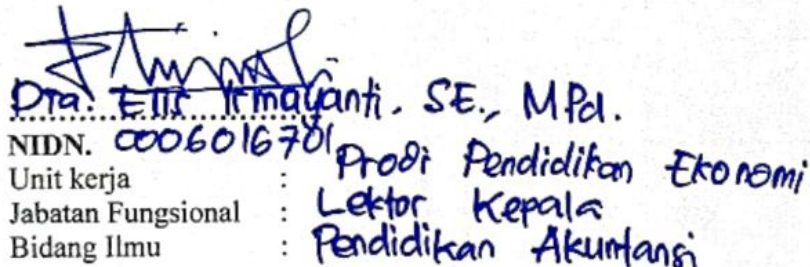 Dra. Elis Irmayanti, SE., M.Pd.
NIDN. 0006016701
Unit kerja : Prodi Pendidikan Ekonomi
Jabatan Fungsional : Lektor Kepala
Bidang Ilmu : Pendidikan Akuntansi